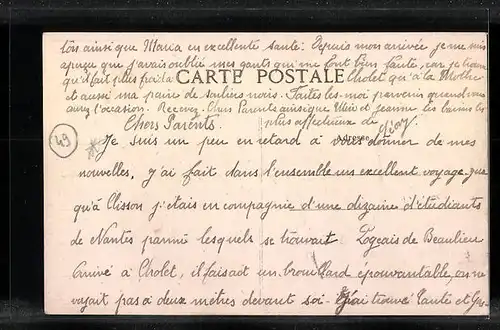 ton ainsi que Maria en excellente santé. Depuis mon arrivée je me suis
aperçu que j'avais oublié mes gants qui me font bien faute, car je trouve
qu'il fait plus froid à Cholet qu'à la Mothe
CARTE POSTALE
et aussi ma paire de souliers noirs. Faites les moi parvenir quand vous
aurez l'occasion. Recevez Chers Parents ainsi que Mémé et Jeanne les baisers les
plus affectueux de
Adresse
49
Chers Parents
Je suis un peu en retard à vous donner de mes
nouvelles, j'ai fait dans l'ensemble un excellent voyage, que
qu'à Clisson j'étais en compagnie d'une dizaine d'étudiants
de Nantes parmi lesquels se trouvait Logeais de Beaulieu
Arrivé à Cholet, il faisait un brouillard épouvantable, on ne
voyait pas à deux mètres devant soi. J'ai trouvé Tante et